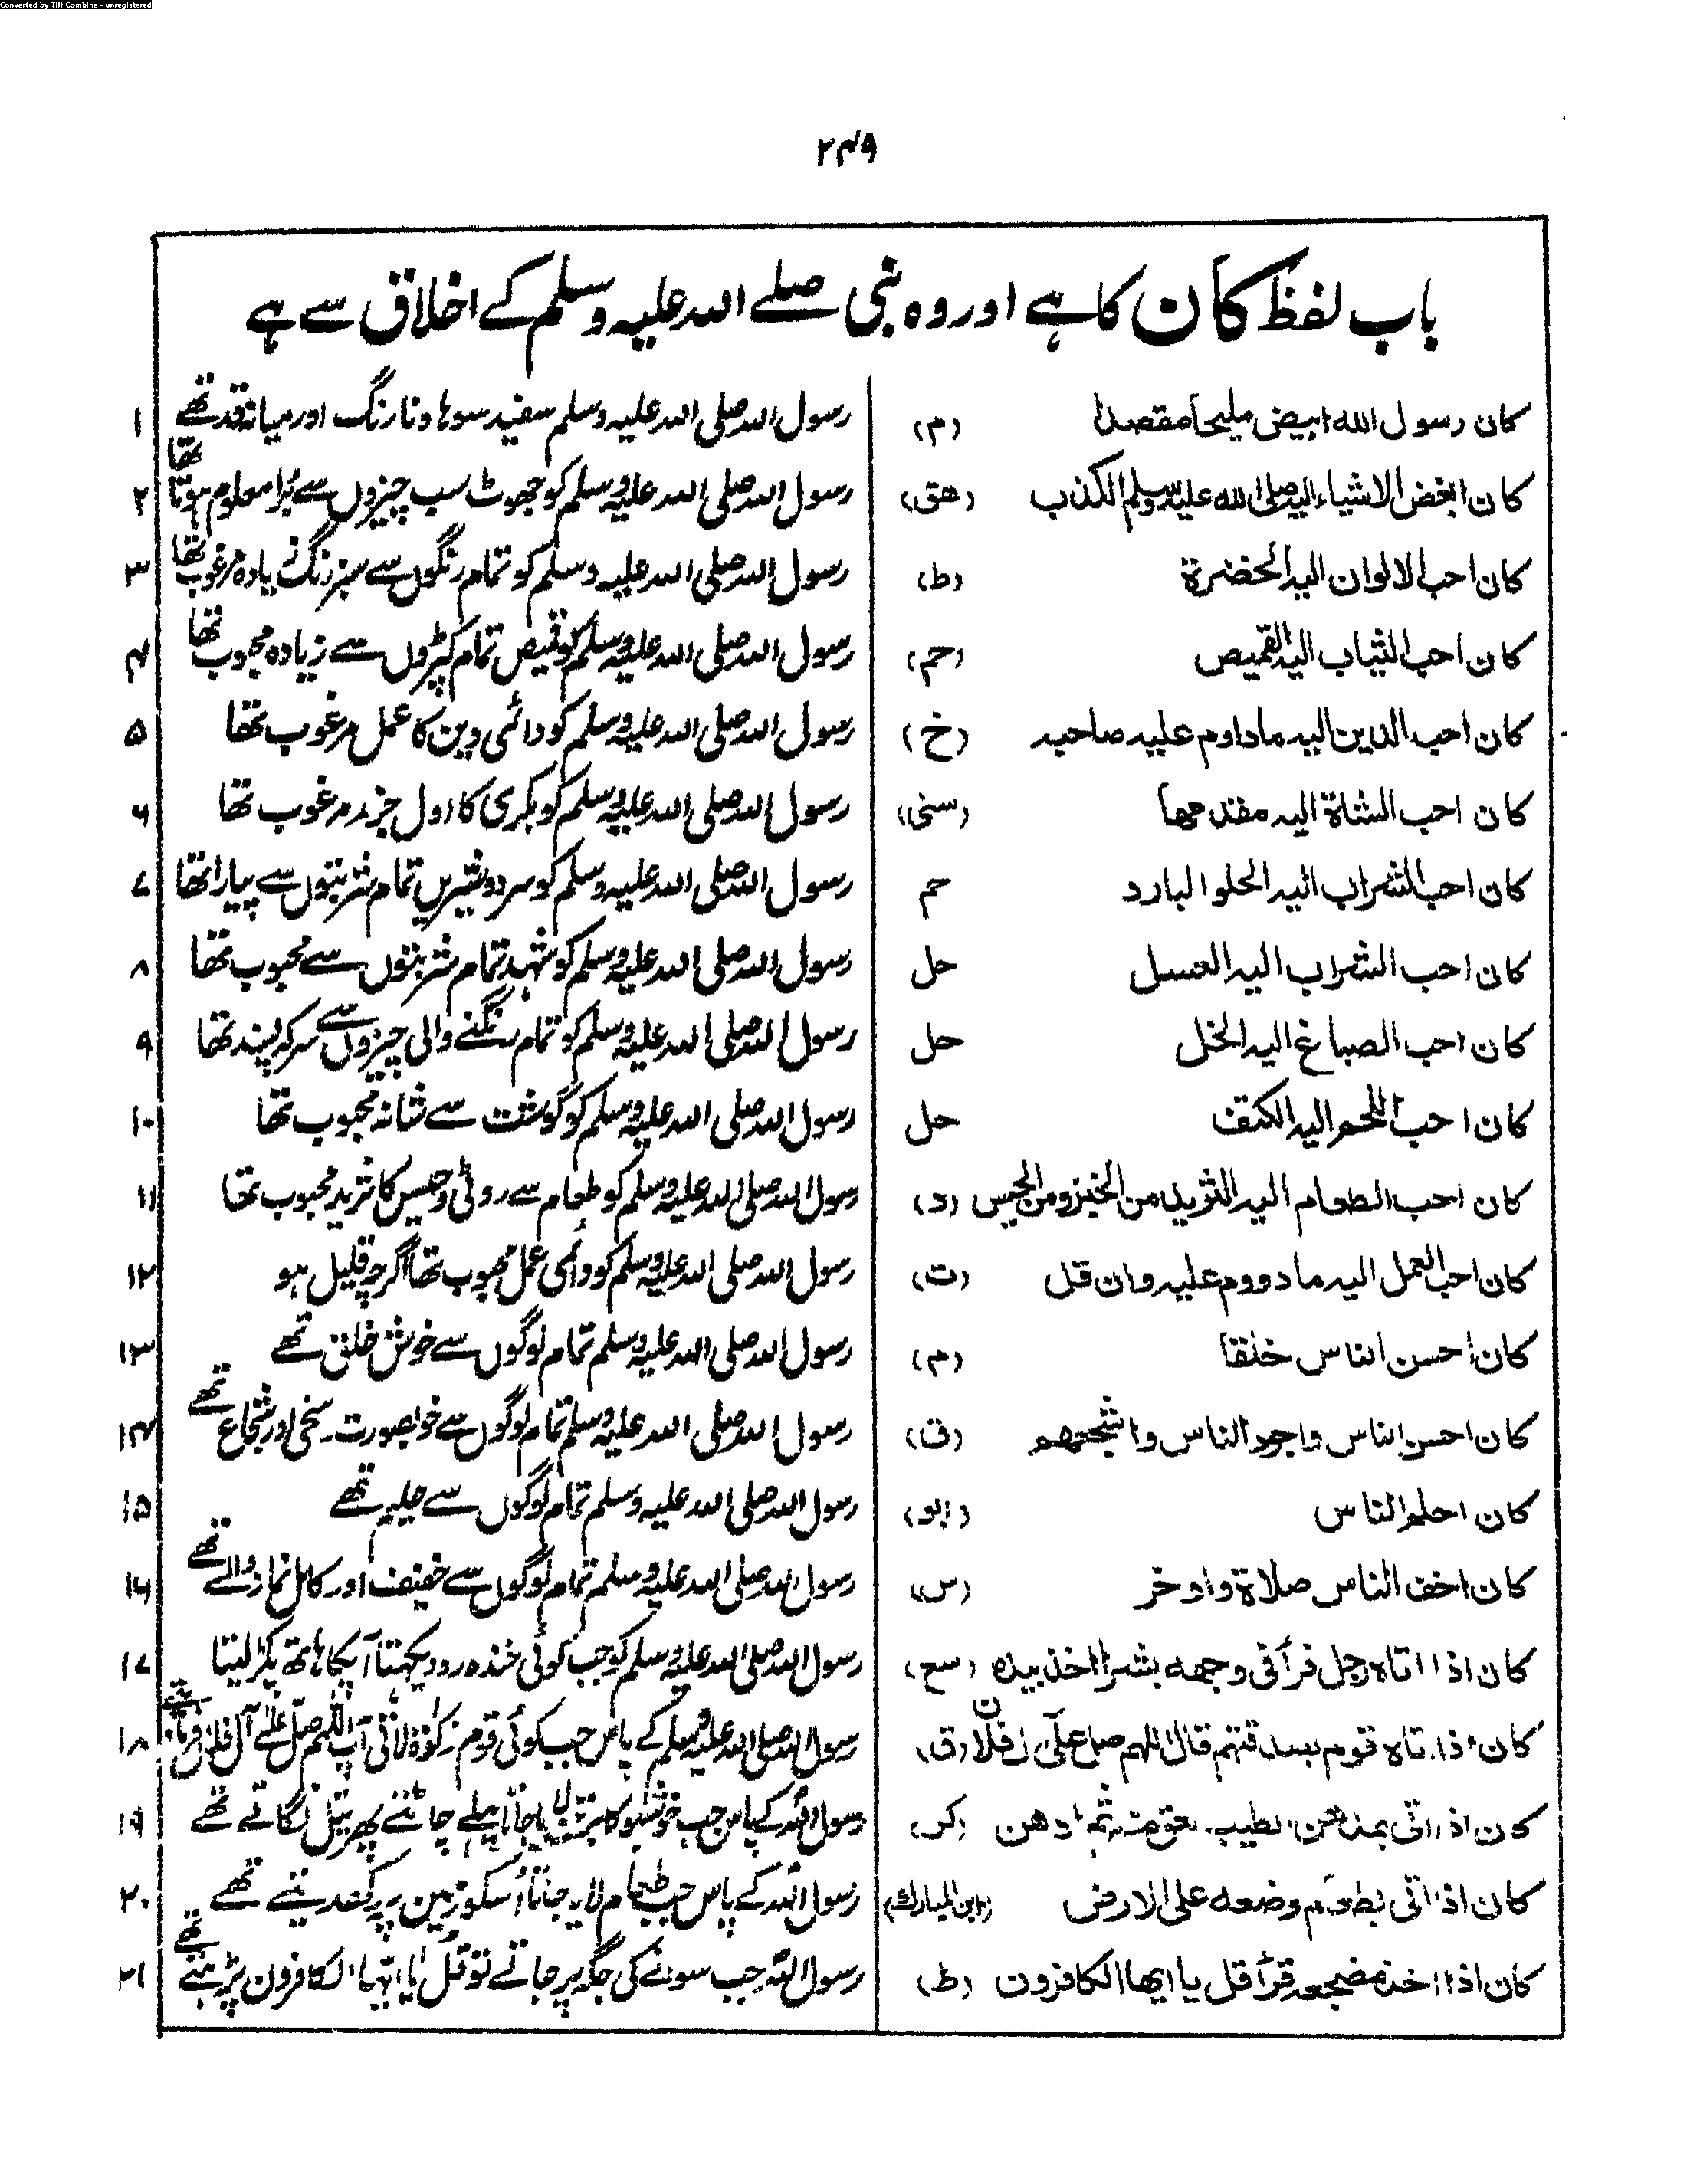 Converted by Tiff Combine - unregistered
۲۴۹
باب لفظ کان کا ہے اور وہ نبی صلے اللہ علیہ وسلم کے اخلاق سے ہے
کان رسول الله ابیض ملیحاً مقصداً (م) رسول اللہ صلی اللہ علیہ وسلم سفید سوہاونا رنگ اور میانہ قد تھے ۱
کان ابغض الاشیاء الیہ صلی الله علیہ وسلم الکذب (هق) رسول اللہ صلی اللہ علیہ وسلم کو جھوٹ سب چیزوں سے بُرا معلوم ہوتا تھا ۲
کان احب الالوان الیہ الخضرة (ط) رسول اللہ صلی اللہ علیہ وسلم کو تمام رنگوں سے سبز رنگ زیادہ مرغوب تھا ۳
کان احب الثیاب الیہ القمیص (حم) رسول اللہ صلی اللہ علیہ وسلم کو قمیص تمام کپڑوں سے زیادہ محبوب تھا ۴
کان احب الدین الیہ ماداوم علیہ صاحبہ (خ) رسول اللہ صلی اللہ علیہ وسلم کو دائمی دین کا عمل مرغوب تھا ۵
کان احب الشاة الیہ مقدمها (سنی) رسول اللہ صلی اللہ علیہ وسلم کو بکری کا اول جزء مرغوب تھا ۶
کان احب الشراب الیہ الحلو البارد حم رسول اللہ صلی اللہ علیہ وسلم کو سرد و شیریں تمام شربتوں سے پیارا تھا ۷
کان احب الشراب الیہ العسل حل رسول اللہ صلی اللہ علیہ وسلم کو شہد تمام شربتوں سے محبوب تھا ۸
کان احب الصباغ الیہ الخل حل رسول اللہ صلی اللہ علیہ وسلم کو تمام رنگنے والی چیزوں سے سرکہ پسند تھا ۹
کان احب اللحم الیہ الکتف حل رسول اللہ صلی اللہ علیہ وسلم کو گوشت سے شانہ محبوب تھا ۱۰
کان احب الطعام الیہ الثرید من الخبز و من الحیس (د) رسول اللہ صلی اللہ علیہ وسلم کو طعام سے روٹی و حیس کا ثرید محبوب تھا ۱۱
کان احب العمل الیہ ما دووم علیہ وان قل (ت) رسول اللہ صلی اللہ علیہ وسلم کو دائمی عمل محبوب تھا اگرچہ قلیل ہو ۱۲
کان احسن الناس خلقا (م) رسول اللہ صلی اللہ علیہ وسلم تمام لوگوں سے خوش خلق تھے ۱۳
کان احسن الناس واجود الناس واشجعهم (ق) رسول اللہ صلی اللہ علیہ وسلم تمام لوگوں سے خوبصورت۔ سخی اور شجاع تھے ۱۴
کان احلم الناس (ابو) رسول اللہ صلی اللہ علیہ وسلم تمام لوگوں سے حلیم تھے ۱۵
کان اخف الناس صلاة وادخر (س) رسول اللہ صلی اللہ علیہ وسلم تمام لوگوں سے خفیف اور کامل نماز والے تھے ۱۶
کان اذا اتاہ رجل فرأی فی وجهه بشرا اخذ بیدہ (سع) رسول اللہ صلی اللہ علیہ وسلم کو جب کوئی خندہ رو دیکہتا آپکا ہاتھ پکڑ لیتا ۱۷
کان اذا اتاہ قوم بصدقتهم قال اللهم صل علی آل فلان (ق) رسول اللہ صلی اللہ علیہ وسلم کے پاس جب کوئی قوم زکوٰۃ لاتی آپ اللّٰہم صلّ علےٰ آل فلاں فرماتے ۱۸
کان اذا اتی بمدهن الطیب لعق منہ ثم ادهن (کر) رسول اللہ کے پاس جب خوشبو کا لایا جاتا پہلے چاٹتے پھر تیل لگاتے تھے ۱۹
کان اذا اتی بطعام وضعه علی الارض (ابن المبارک) رسول اللہ کے پاس جب طعام لایا جاتا اُسکو زمین پر رکھدیتے تھے ۲۰
کان اذا اخذ مضجعہ قرأ قل یا ایها الکافرون (ط) رسول اللہ جب سونے کی جگہ پر جاتے تو قُل یا ایّہا الکافرون پڑہتے تھے ۲۱